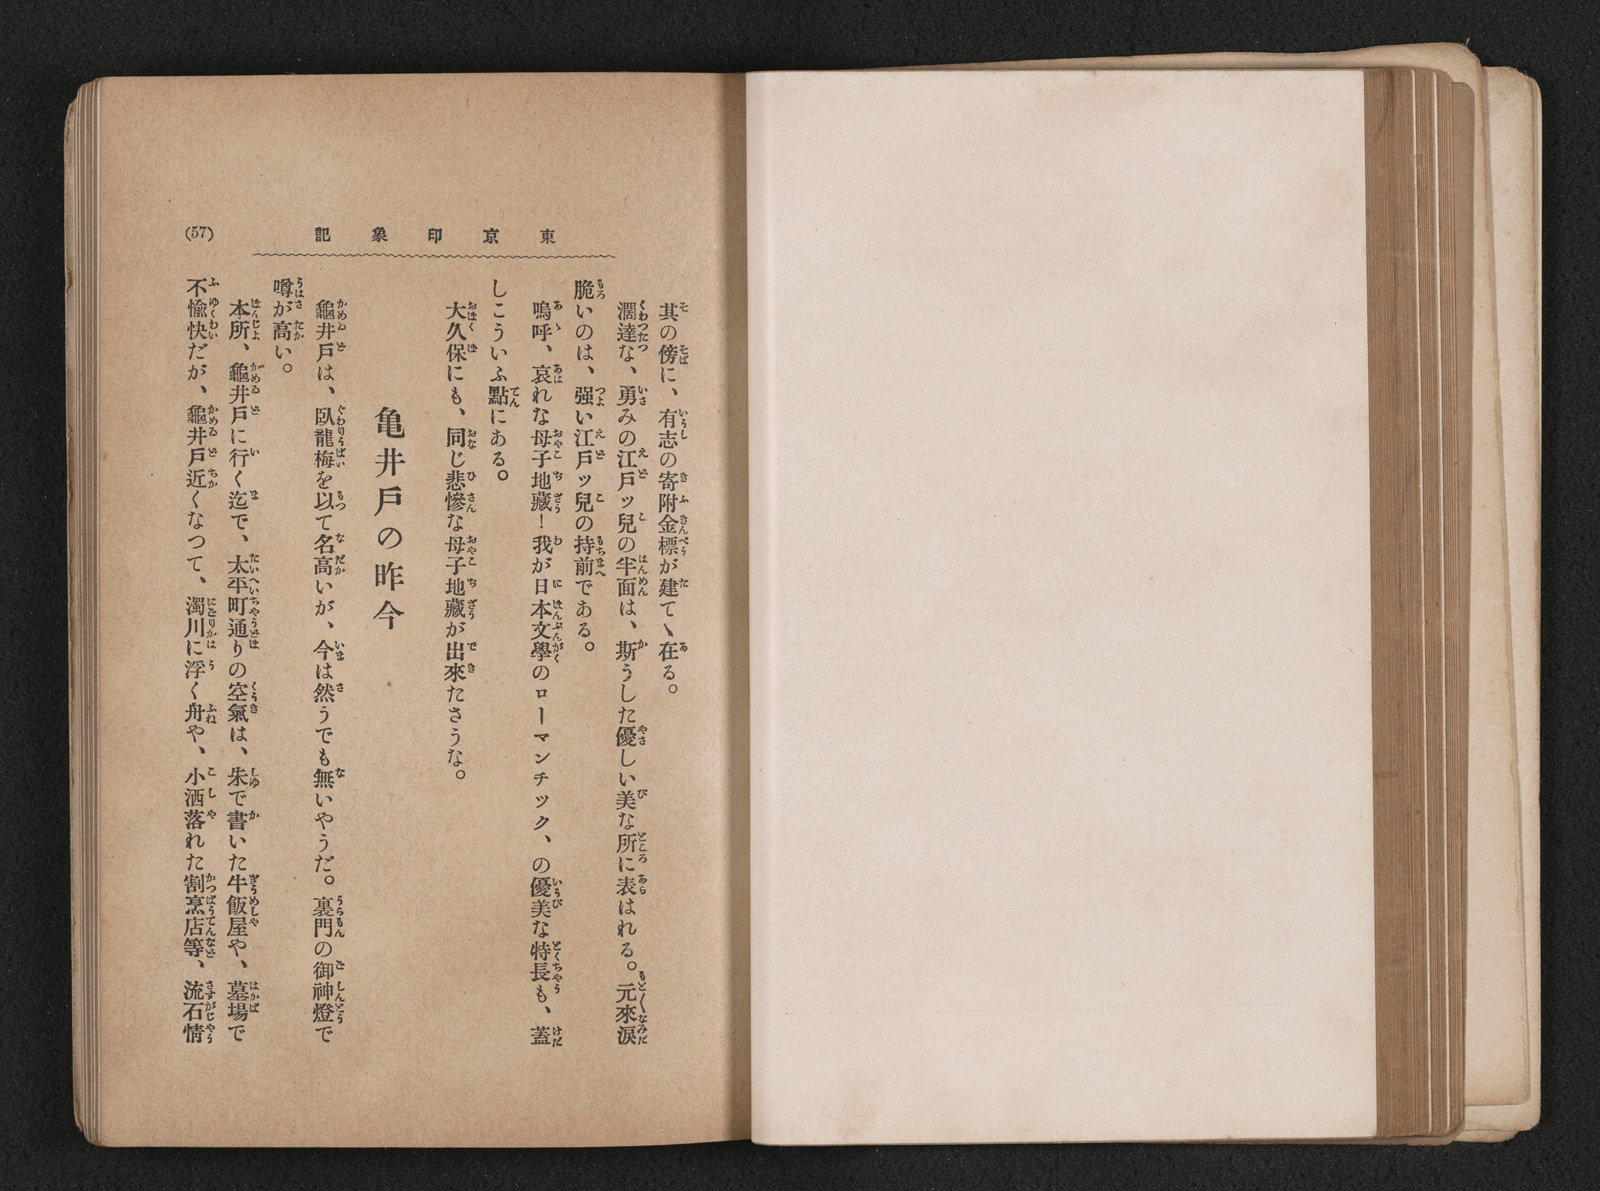 東京印象記
(57)
其の傍に、有志の寄附金標が建て丶在る。
濶達な、勇みの江戸ッ兒の半面は、斯うした優しい美な所に表はれる。元來涙
脆いのは、强い江戸ッ兒の持前である。
嗚呼、哀れな母子地藏！我が日本文學のローマンチック、の優美な特長も、蓋
しこういふ點にある。
大久保にも、同じ悲慘な母子地藏が出來たさうな。
亀井戸の昨今
龜井戸は、臥龍梅を以て名高いが、今は然うでも無いやうだ。裏門の御神燈で
噂が高い。
本所、龜井戸に行く迄で、太平町通りの空氣は、朱で書いた牛飯屋や、墓場で
不愉快だが、龜井戸近くなつて、濁川に浮く舟や、小洒落れた割烹店等、流石情